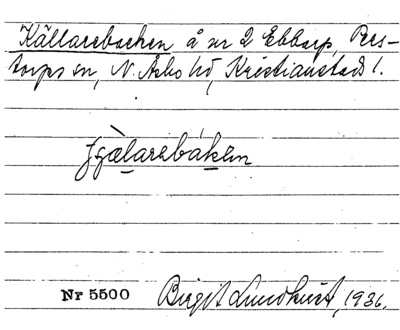 Källarebacken å nr 2 Ebbarp, Pers-
torps sn, N. Åsbo hd, Kristianstads l.
Nr 5500 Birgit Lundkvist, 1936.